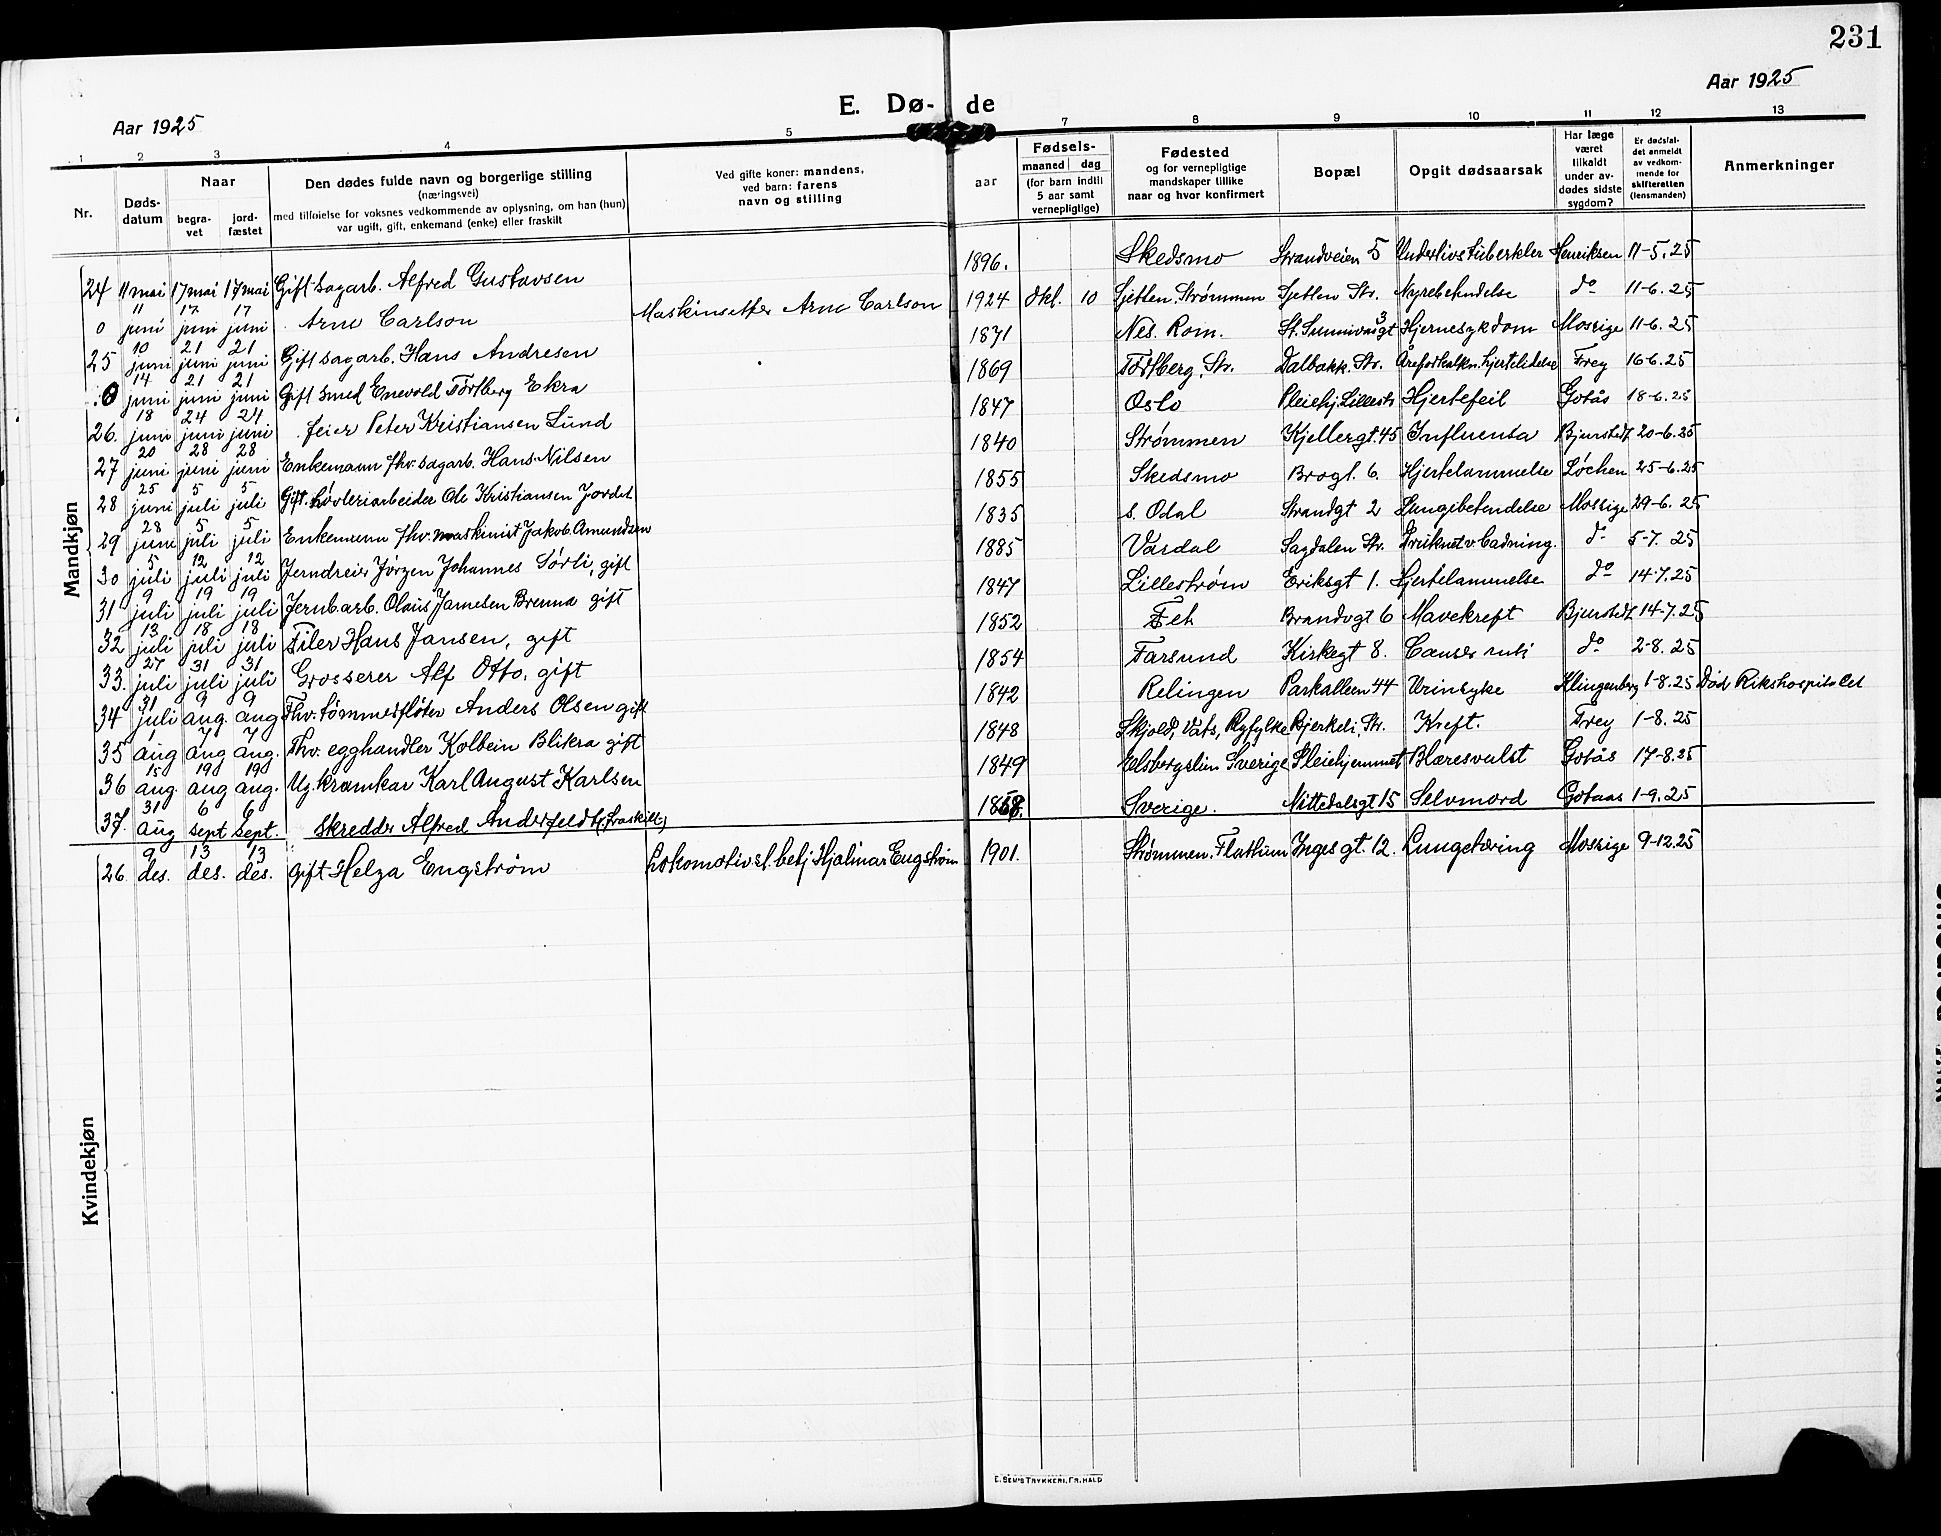 231
Aar 1925
Aar 1925
E. Dø- de
1 2 3 4 5 7 8 9 10 11 12 13
Nr.
Døds-datum
Naar
begra-vet
jord-fæstet
Den dødes fulde navn og borgerlige stilling
(næringsvei)
med tilføielse for voksnes vedkommende av oplysning, om han (hun)
var ugift, gift, enkemand (enke) eller fraskilt
Ved gifte koner: mandens,
ved barn: farens
navn og stilling
aar
Fødsels-
maaned dag
(for barn indtil
5 aar samt
vernepligtige)
Fødested
og for vernepligtige
mandskaper tillike
naar og hvor konfirmert
Bopæl
Opgit dødsaarsak
Har læge
været
tilkaldt
under av-
dødes sidste
sygdom?
Er dødsfal-
det anmeldt
av vedkom-
mende for
skifteretten
(lensmanden)
Anmerkninger
Mandkjøn
24 11 mai 17 mai 17 mai Gift sagarb. Alfred Gustavsen 1896. Skedsmo Strandveien 5 Underlivstuberkler Henriksen 11-5.25
0 11 juni 17 juni 17 juni Arne Carlson Maskinsetter Arne Carlson 1924 Okt. 10 Sjetten, Strømmen Sjetten Str. Nyrebetendelse do 11-6.25
25 10 juni 21 juni 21 juni Gift sagarb. Hans Andresen 1871 Nes. Rom. St. Sunnivasgt 3 Hjernesykdom Mossige 11-6.25
0 14 juni 21 juni 21 juni Gift smed Enevold Torsberg Ekra 1869 Torsberg, Str. Dalbakk. Str. Åreforkalkn. hjertelidelse Frey 16-6.25
26. 18 juni 24 juni 24 juni feier Peter Kristiansen Lund 1847 Oslo Pleiehj. Lillestr Hjertefeil Gotås 18-6.25
27 20 juni 28 juni 28 juni Enkemann fhv. sagarb. Hans Nilsen 1840 Strømmen Kjellergt. 45 Influensa Bjurstedt 20-6.25
28 25 juni 5 juli 5 juli Gift. høvleriarbeider Ole Kristiansen Jordet 1855 Skedsmo Brogt. 6. Hjertelammelse Løchen 25-6.25
29 28 juni 5 juli 5 juli Enkemann fhv. maskinist Jakob Amundsen 1835 s. Odal Strandgt 2 Lungebetendelse Mossige 29-6.25
30 5 juli 12 juli 12 juli Jerndreier Jörgen Johannes Sörli, gift 1885 Vardal Sagdalen Str. Druknet v badning. do 5-7.25
31 9 juli 19 juli 19 juli Jernbarb. Olaus Jamesen Brenna gift 1847 Lillestrøm Eriksgt 1. Hjertelammelse do 14.7.25
32 13 juli 18 juli 18 juli Filer Hans Jansen, gift 1852 Fet Brandvgt 6 Mavekreft Bjurstedt 14-7.25
33. 27 juli 31 juli 31 juli Grosserer Alf Otto, gift 1854 Farsund Kirkegt 8. Cancer do 2-8.25
34 31 juli 9 aug. 9 aug Fhv. tømmerfløter Anders Olsen gift 1842 Relingen Parkalleen 44 Urinsyke Klingenberg 1-8.25 Død Rikshospitalet
35 1 aug 7 aug 7 aug. Fhv. egghandler Kolbein Blikra gift 1848 Skjold, Vats, Ryfylke Bjerkeli, Str. Kreft. Frey 1-8.25
36 15 aug. 19 aug 19 aug. Ug. kramkar Karl August Karlsen 1849 Sverige Pleiehjemmet Blæresvulst Gotås 17-8.25
37. 31 aug 6 sept 6 sept. Skredder Alfred Anderfeldt (fraskilt) 1868. Sverige. Nittedalsgt 15 Selvmord Gotaas 1-9.25
Kvindekjøn
26. 9 des. 13 des. 13 des. gift Helga Engström Lokomotivst. betj Hjalmar Engström 1901. Strømmen. Flathum Ingesgt. 12. Lungetæring Mossige 9-12.25
E. SEM'S TRYKKERI, FR.HALD